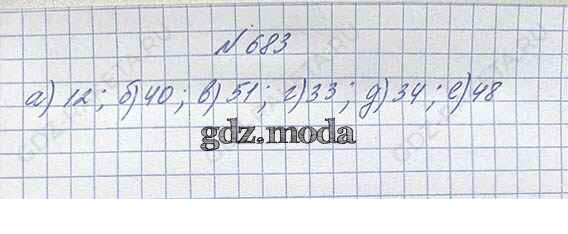 № 683
а) 12; б) 40; в) 51; г) 33; д) 34; е) 48
gdz.moda